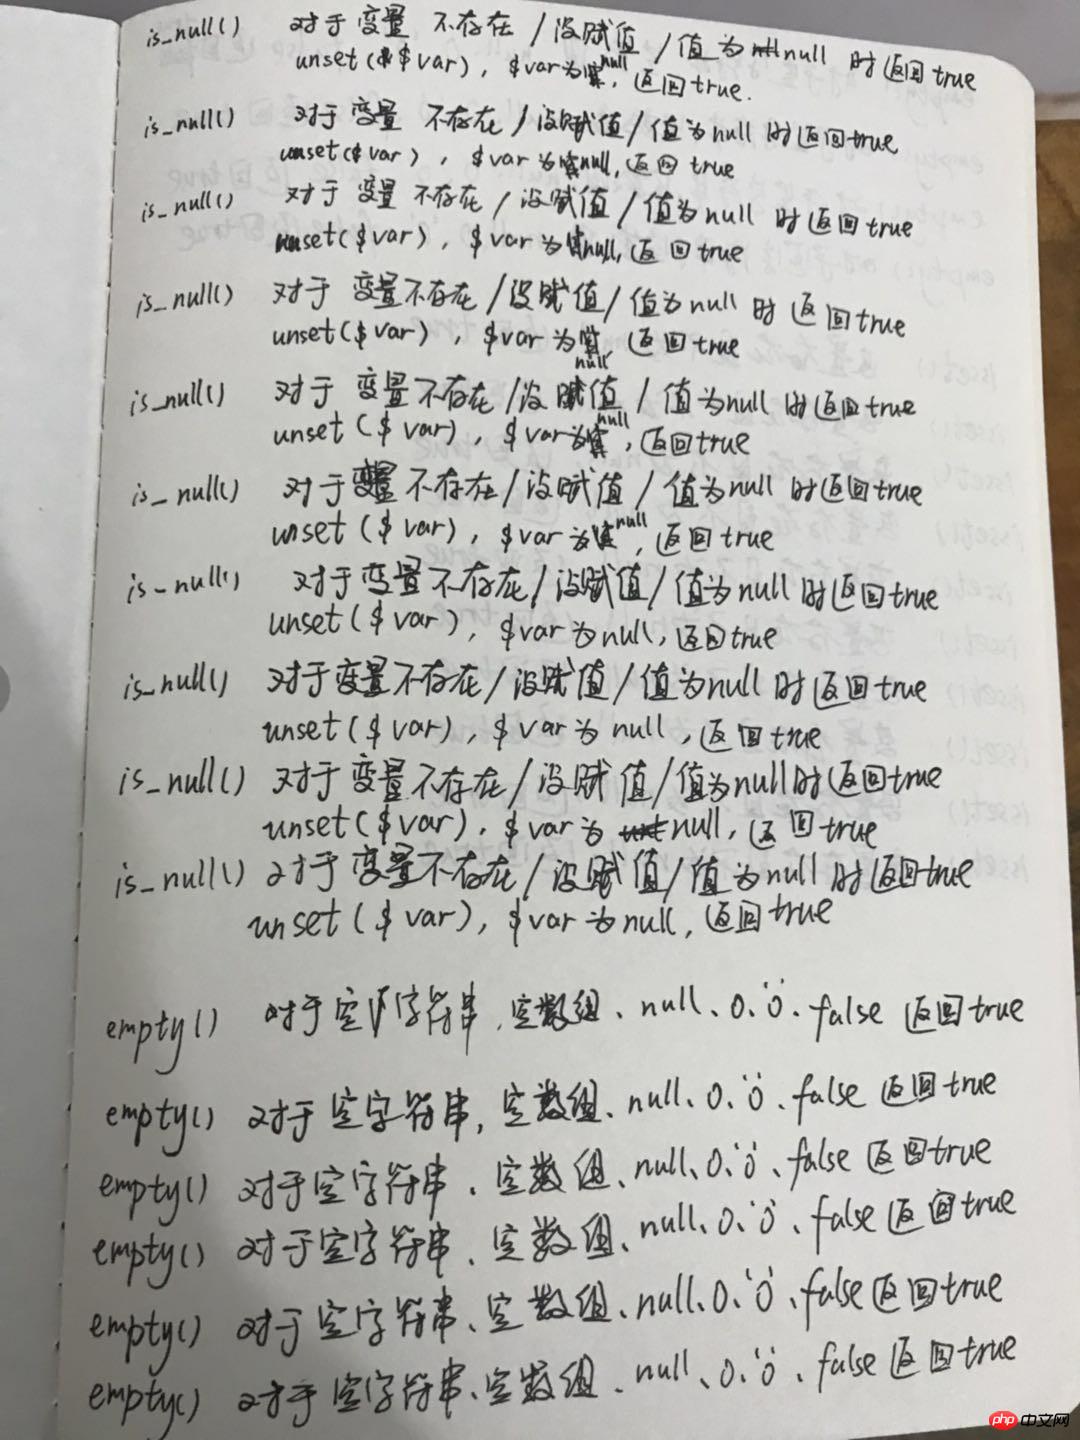 is_null() 对于变量 不存在/没赋值/值为null 时返回true
unset($var), $var为null, 返回true.
is_null() 对于变量 不存在/没赋值/值为null 时返回true
unset($var), $var为null, 返回true
is_null() 对于变量 不存在/没赋值/值为null 时返回true
unset($var), $var为null, 返回true
is_null() 对于变量不存在/没赋值/值为null 时返回true
unset($var), $var为null, 返回true
is_null() 对于变量不存在/没赋值/值为null 时返回true
unset($var), $var为null, 返回true
is_null() 对于变量不存在/没赋值/值为null 时返回true
unset($var), $var为null, 返回true
is_null() 对于变量不存在/没赋值/值为null 时返回true
unset($var), $var为null, 返回true
is_null() 对于变量不存在/没赋值/值为null 时返回true
unset($var), $var为 null, 返回true
is_null() 对于变量不存在/没赋值/值为null时返回true
unset($var), $var为 null, 返回true
is_null() 对于变量不存在/没赋值/值为null 时返回true
unset($var), $var为null, 返回true
empty() 对于空字符串、空数组、null、0、'0'、false 返回true
empty() 对于空字符串, 空数组、null、0、'0'、false 返回true
empty() 对于空字符串、空数组、null、0、'0'、false 返回true
empty() 对于空字符串、空数组、null、0、'0'、false 返回true
empty() 对于空字符串、空数组、null、0、'0'、false 返回true
empty() 对于空字符串、空数组、null、0、'0'、false 返回true
php 中文网